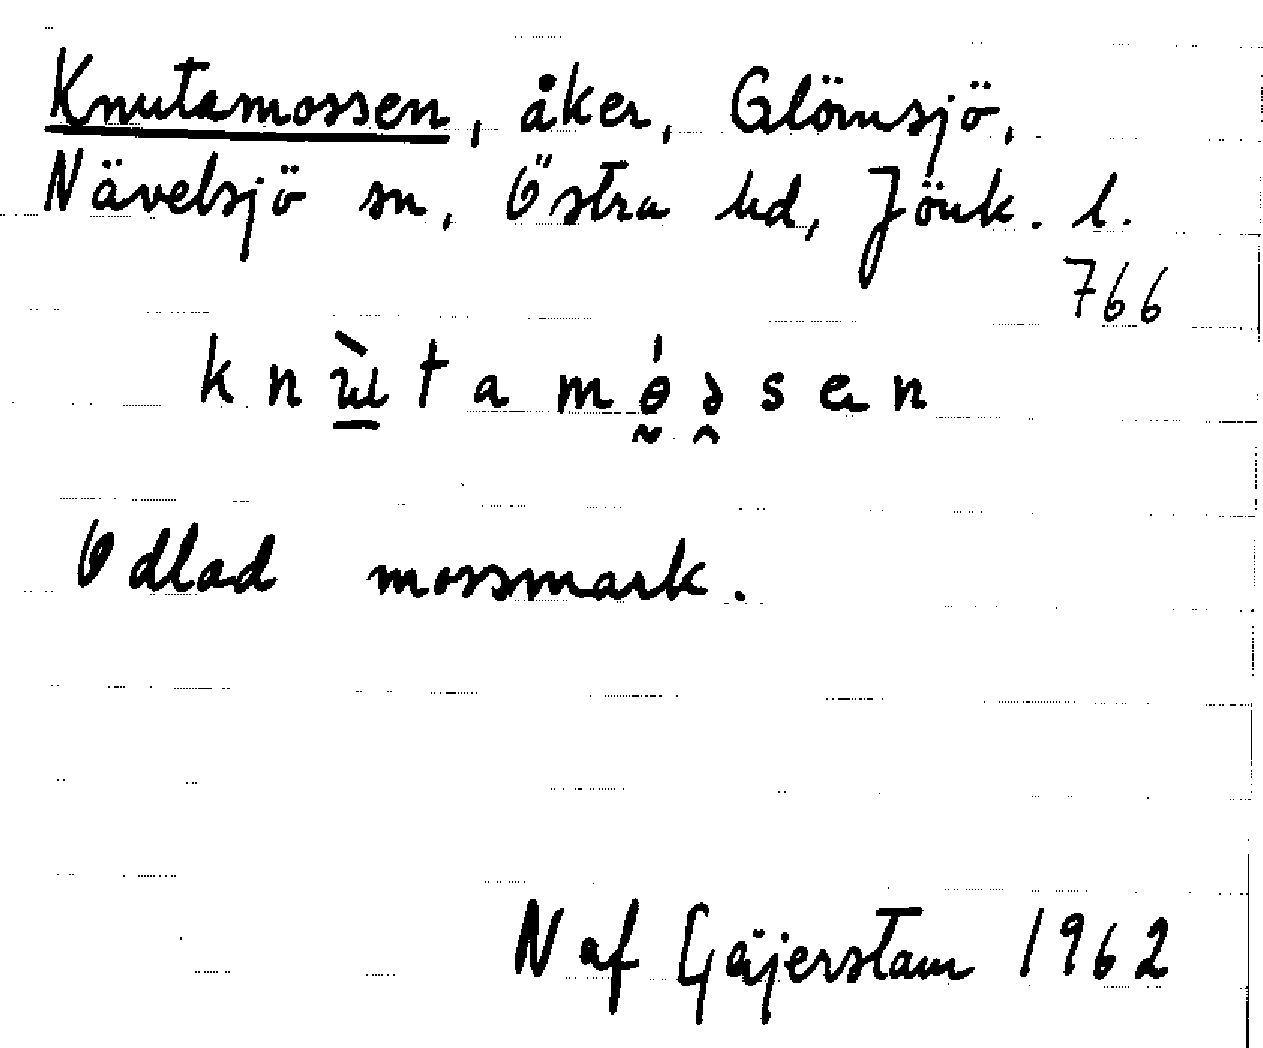 Knutamossen, åker, Glömsjö,
Nävelsjö sn, Östra hd, Jönk. l.
766
knùtamósen
Odlad mossmark.
N af Gäijerstam 1962